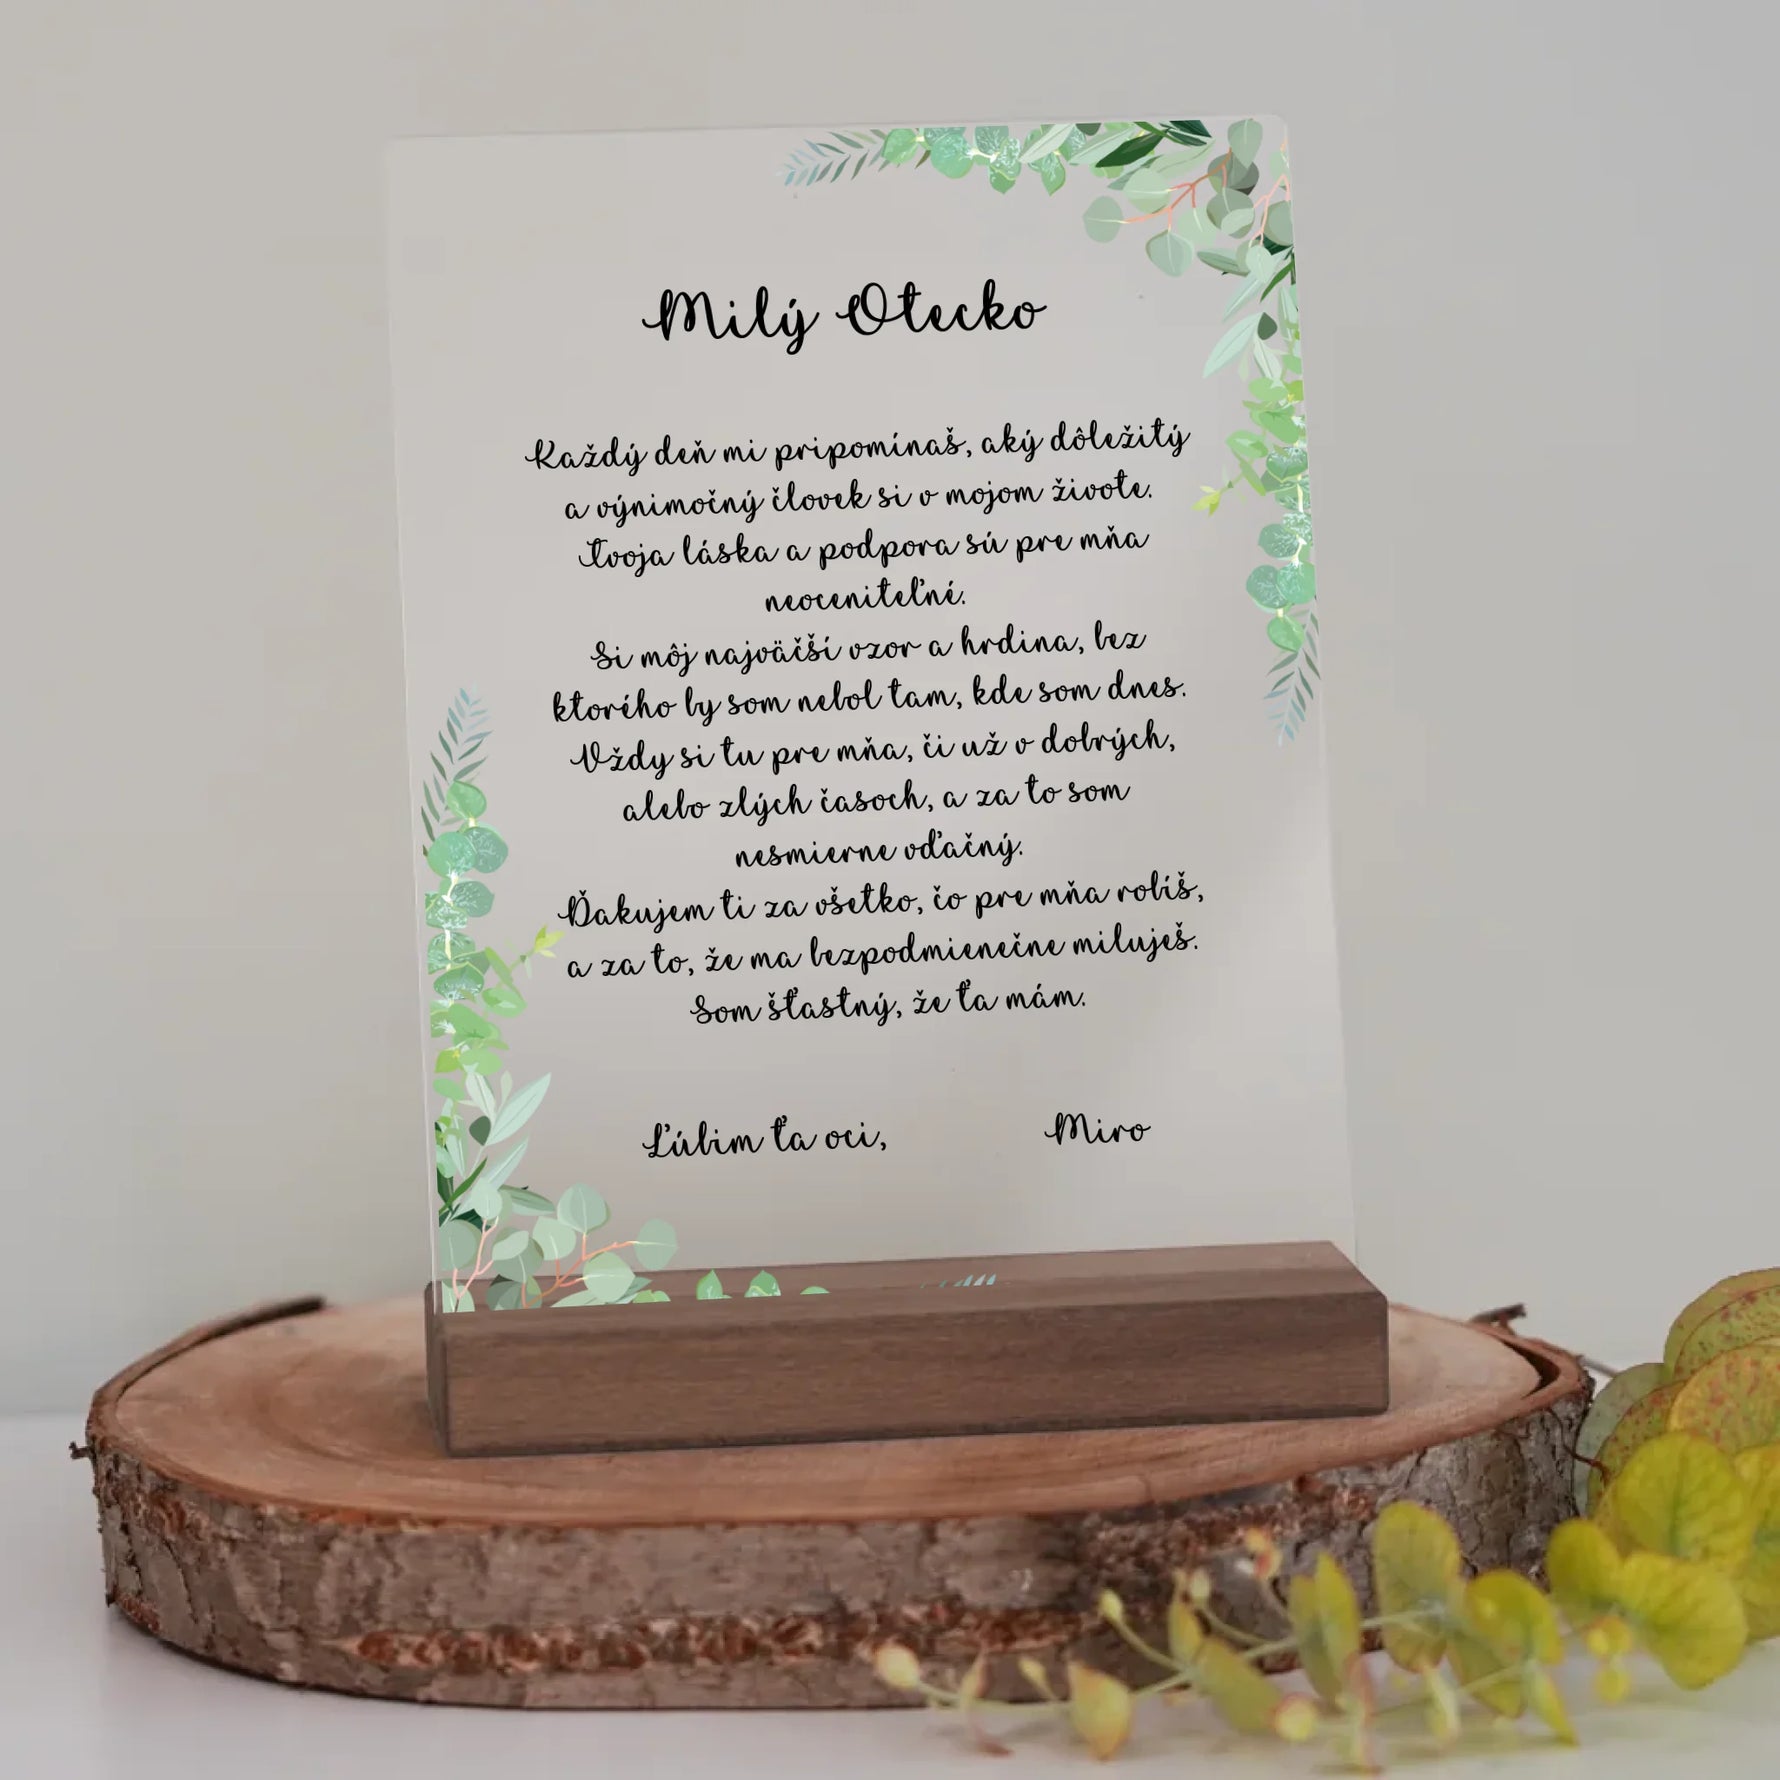 Milý Otecko
Každý deň mi pripomínaš, aký dôležitý
a výnimočný človek si v mojom živote.
Tvoja láska a podpora sú pre mňa
neoceniteľné.
Si môj najväčší vzor a hrdina, bez
ktorého by som nebol tam, kde som dnes.
Vždy si tu pre mňa, či už v dobrých,
alebo zlých časoch, a za to som
nesmierne vďačný.
Ďakujem ti za všetko, čo pre mňa robíš,
a za to, že ma bezpodmienečne miluješ.
Som šťastný, že ťa mám.
Ľúbim ťa oci, Miro